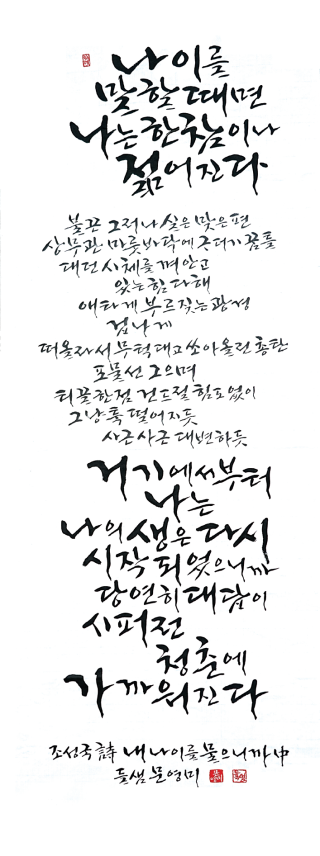 나이를
말할 때면
나는 한국놈이나
젊어진다
불끈 그러나 싶은 맞은편
상무관 마룻바닥에 구더기 꿈틀
대던 시체를 껴안고
있는 힘 다해
애타게 부르짖는 광경
겁나게
떠올라서 무턱대고 쏘아올린 총탄
포물선 그으며
티끌 한 점 건드릴 힘도 없이
그냥 툭 떨어지듯
사근사근 대변하듯
거기에서부터
나는
나의 생은 다시
시작되었으니까
당연히 대답이
시퍼런
청춘에
가까워진다
조성국 詩 내 나이를 물으니까 中
들샘 문영미